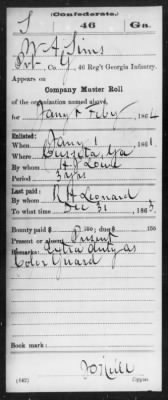 (Confederate.)
S 46 Ga.
W. A. Sims
Pvt., Co. G, 46 Reg't Georgia Infantry.
Appears on
Company Muster Roll
of the organization named above,
for Jany & Feby, 1864
Enlisted:
When Jany 1, 1861.
Where Cusseta, Ga
By whom
Period 3 yrs
Last paid:
By whom R H Leonard
To what time Dec 31, 1863.
Bounty paid $ 100; due $ 100
Present or absent Present
Remarks: Extra duty as
Color Guard
Book mark:
(642) Copyist.